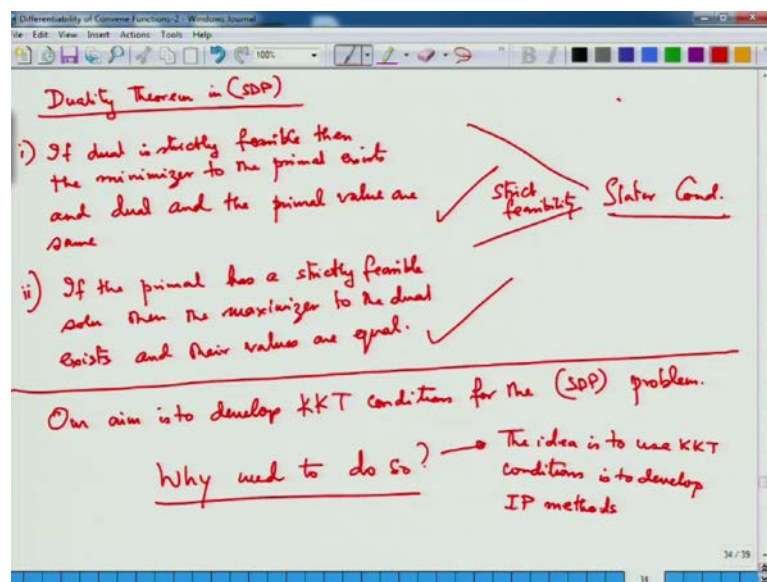 Differentiability of Convene Functions-2 - Windows Journal
File Edit View Insert Actions Tools Help
100%
B I
Duality Theorem in (SDP)
i) If dual is strictly feasible then
the minimizer to the primal exists
and dual and the primal value are
same
Strict
feasibility
Slater Cond.
ii) If the primal has a strictly feasible
soln then the maximizer to the dual
exists and their values are equal.
Our aim is to develop KKT conditions for the (SDP) problem.
Why need to do so?
The idea is to use KKT
conditions is to develop
IP methods
34 / 39
34